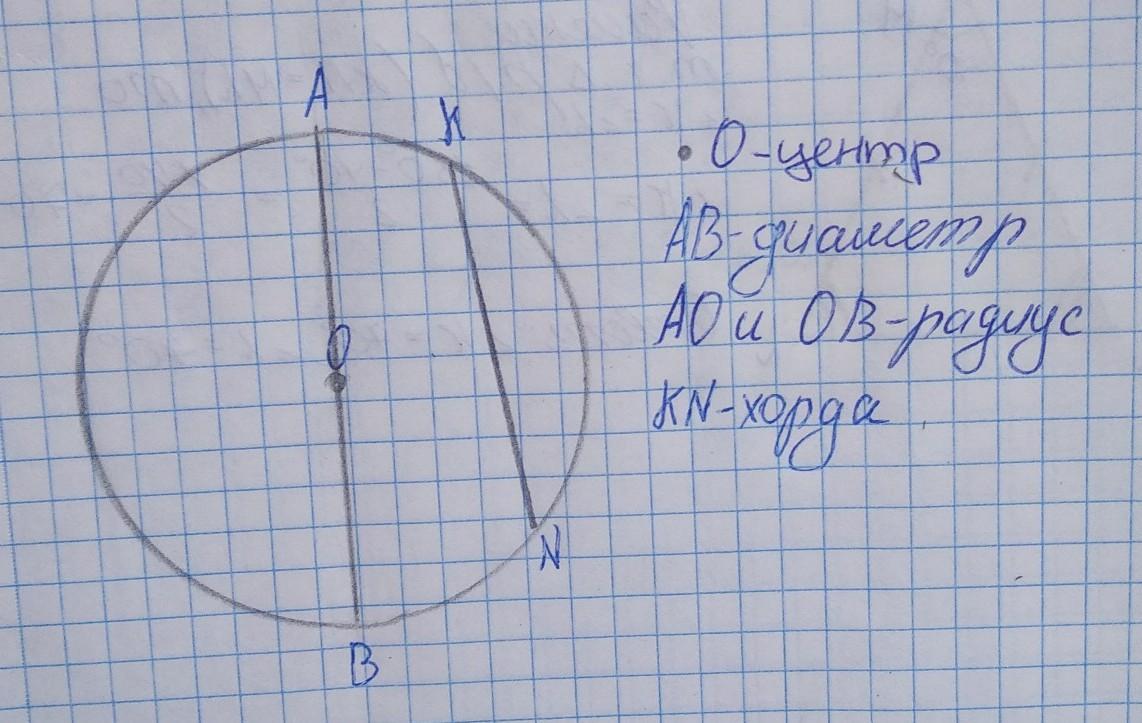 A
K
• O-центр
AB-диаметр
AO и OB-радиус
O
KN-хорда
N
B